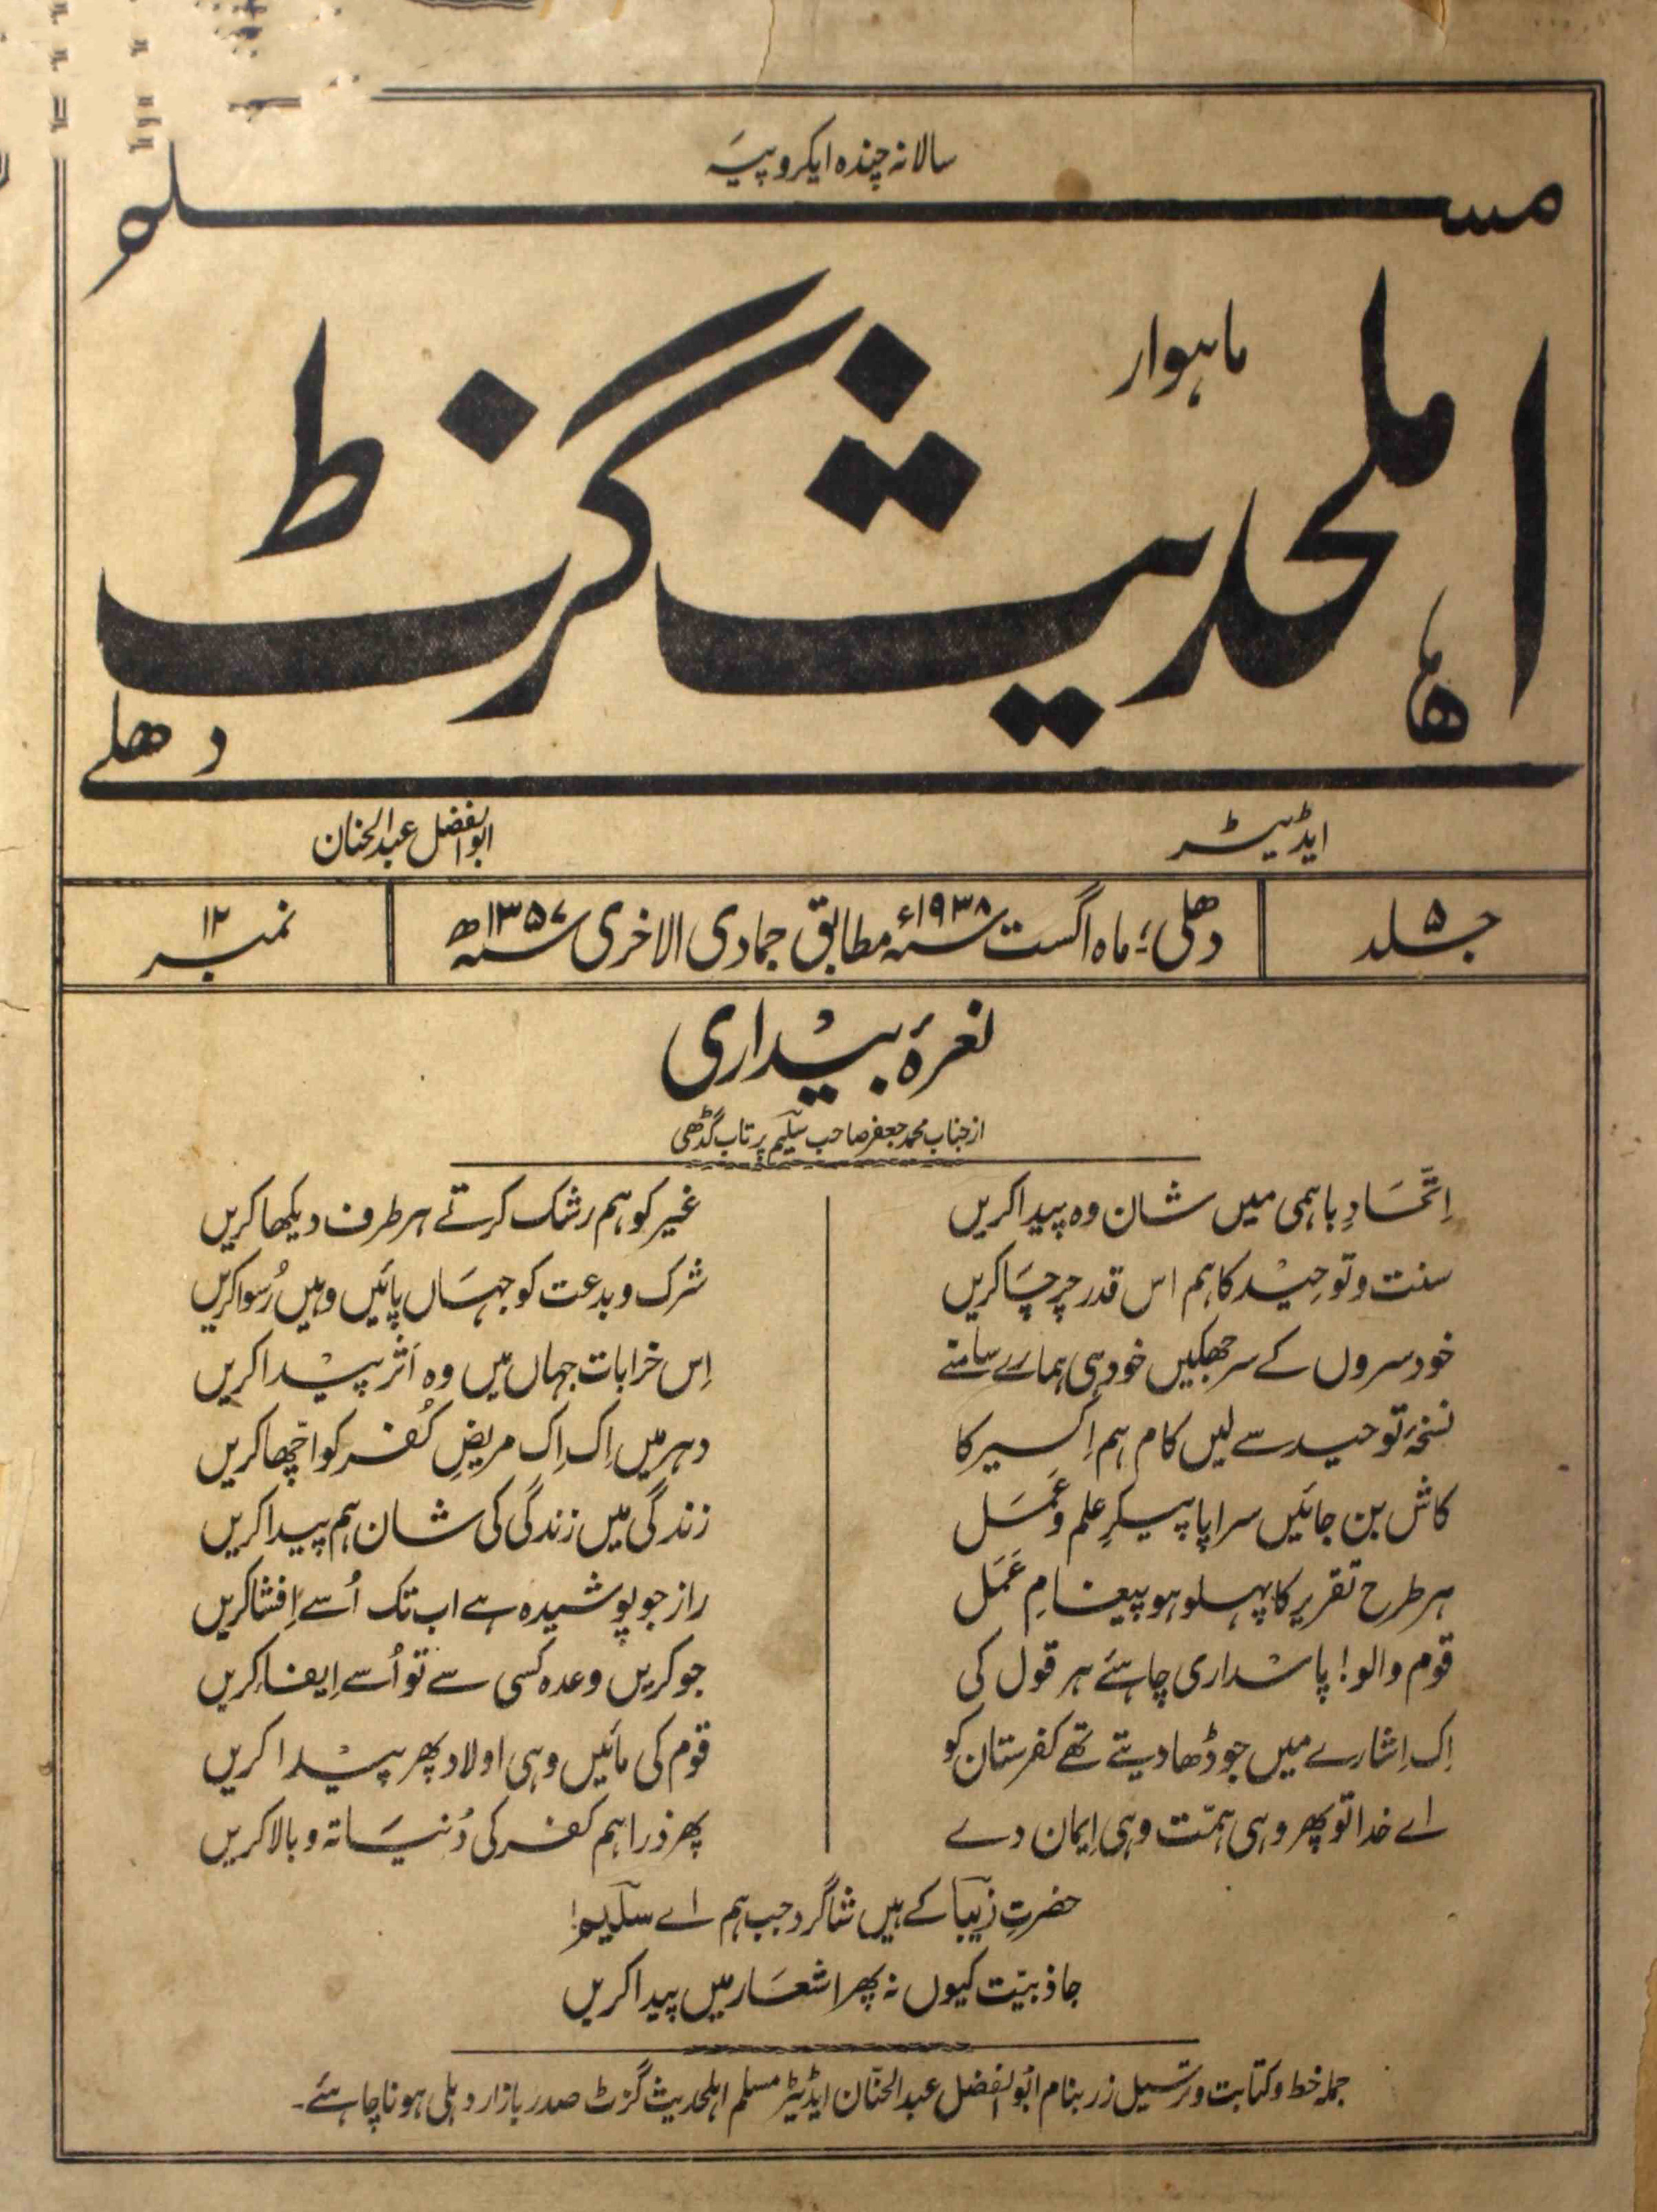 سالانہ چندہ ایکروپیہ
مسلم
ماہوار
اہلحدیث گزٹ
دھلی
ایڈیٹر ابوالفضل عبدالحنان
جلد ۵ دھلی؛ ماہ اگست ۱۹۳۸ء مطابق جمادی الاخری سنہ ۱۳۵۷ھ نمبر ۱۲
نعرۂ بیداری
از جناب محمد جعفر صاحب سلیم پرتاب گڈھی
اِتّحادِ باہمی میں شان وہ پیدا کریں غیر کو ہم رشک کرتے ہر طرف دیکھا کریں
سنت و توحید کا ہم اس قدر چرچا کریں شرک و بدعت کو جہاں پائیں وہیں رُسوا کریں
خودسروں کے سر جھکیں خود ہی ہمارے سامنے اِس خرابات جہاں میں وہ اَثر پیدا کریں
نسخۂ توحید سے لیں کام ہم اِکسیر کا دہر میں اِک اِک مریضِ کُفر کو اچّھا کریں
کاش بن جائیں سراپا پیکرِ علم و عَمَل زندگی میں زندگی کی شان ہم پیدا کریں
ہر طرح تقریر کا پہلو ہو پیغامِ عَمَل راز جو پوشیدہ ہے اب تک اُسے اِفشا کریں
قوم والو! پاسداری چاہئے ہر قول کی جو کریں وعدہ کسی سے تو اُسے اِیفا کریں
اِک اِشارے میں جو ڈھا دیتے تھے کفرستان کو قوم کی مائیں وہی اولاد پھر پیدا کریں
اے خدا تو پھر وہی ہمّت وہی اِیمان دے پھر ذرا ہم کفر کی دُنیا تہ و بالا کریں
حضرتِ زیبا کے ہیں شاگرد جب ہم اے سلیم!
جاذبیّت کیوں نہ پھر اشعار میں پیدا کریں
جملہ خط و کتابت و ترسیل زر بنام ابوالفضل عبدالحنّان ایڈیٹر مسلم اہلحدیث گزٹ صدر بازار دہلی ہونا چاہئے۔